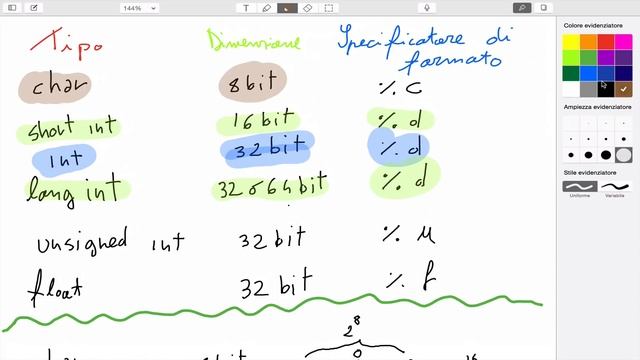 144%
Tipo Dimensione Specificatore di formato
char 8 bit % c
short int 16 bit % d
int 32 bit % d
long int 32 o 64 bit % d
unsigned int 32 bit % u
float 32 bit % f
2^8
0
Colore evidenziatore
Ampiezza evidenziatore
Stile evidenziatore
Uniforme Variabile